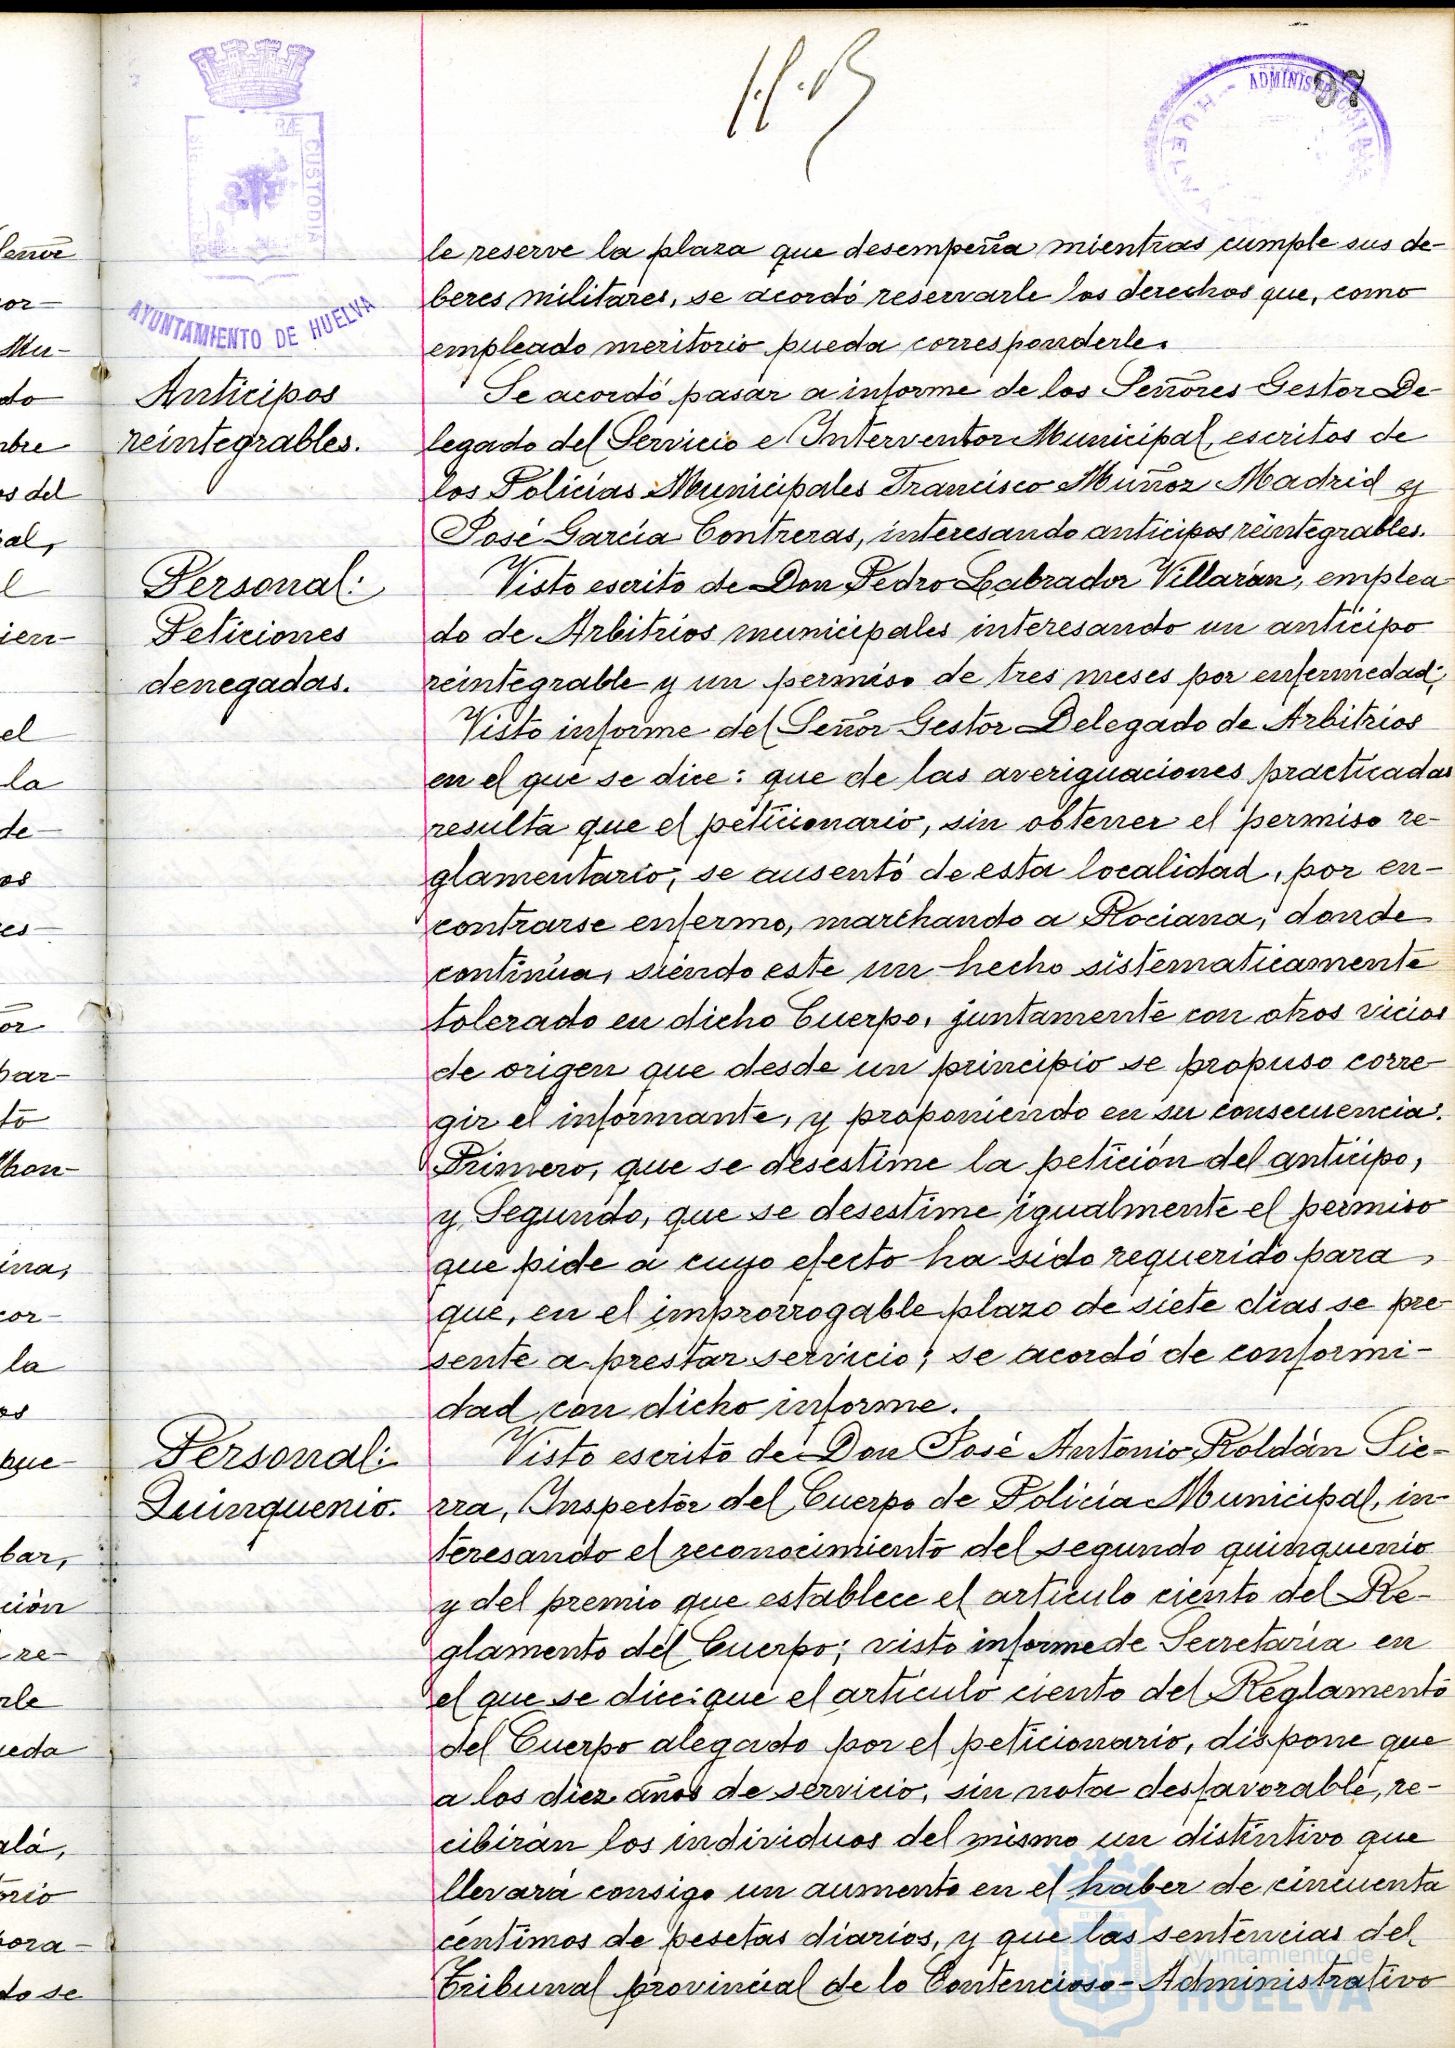 97
ADMINISTRACIÓN
HUELVA
CUSTODIA
AYUNTAMIENTO DE HUELVA
le reserve la plaza que desempeña mientras cumple sus de-
beres militares, se acordó reservarle los derechos que, como
empleado meritorio pueda corresponderle.
Anticipos
reintegrables.
Se acordó pasar a informe de los Señores Gestor De-
legado del Servicio e Interventor Municipal, escritos de
los Policías Municipales Francisco Muñoz Madrid y
José García Contreras, interesando anticipos reintegrables.
Personal:
Peticiones
denegadas.
Visto escrito de Don Pedro Labrador Villarán, emplea-
do de Arbitrios municipales interesando un anticipo
reintegrable y un permiso de tres meses por enfermedad;
Visto informe del Señor Gestor Delegado de Arbitrios
en el que se dice: que de las averiguaciones practicadas
resulta que el peticionario, sin obtener el permiso re-
glamentario, se ausentó de esta localidad, por en-
contrarse enfermo, marchando a Rociana, donde
continúa, siendo este un hecho sistemáticamente
tolerado en dicho Cuerpo, juntamente con otros vicios
de origen que desde un principio se propuso corre-
gir el informante, y proponiendo en su consecuencia:
Primero, que se desestime la petición del anticipo,
y Segundo, que se desestime igualmente el permiso
que pide a cuyo efecto ha sido requerido para
que, en el improrrogable plazo de siete días se pre-
sente a prestar servicio; se acordó de conformi-
dad con dicho informe.
Personal:
Quinquenio.
Visto escrito de Don José Antonio Roldán Sie-
rra, Inspector del Cuerpo de Policía Municipal, in-
teresando el reconocimiento del segundo quinquenio
y del premio que establece el artículo ciento del Re-
glamento del Cuerpo; visto informe de Secretaría en
el que se dice: que el artículo ciento del Reglamento
del Cuerpo alegado por el peticionario, dispone que
a los diez años de servicio, sin nota desfavorable, re-
cibirán los individuos del mismo un distintivo que
llevará consigo un aumento en el haber de cincuenta
céntimos de pesetas diarios, y que las sentencias del
Tribunal provincial de lo Contencioso-Administrativo
Ayuntamiento de
HUELVA